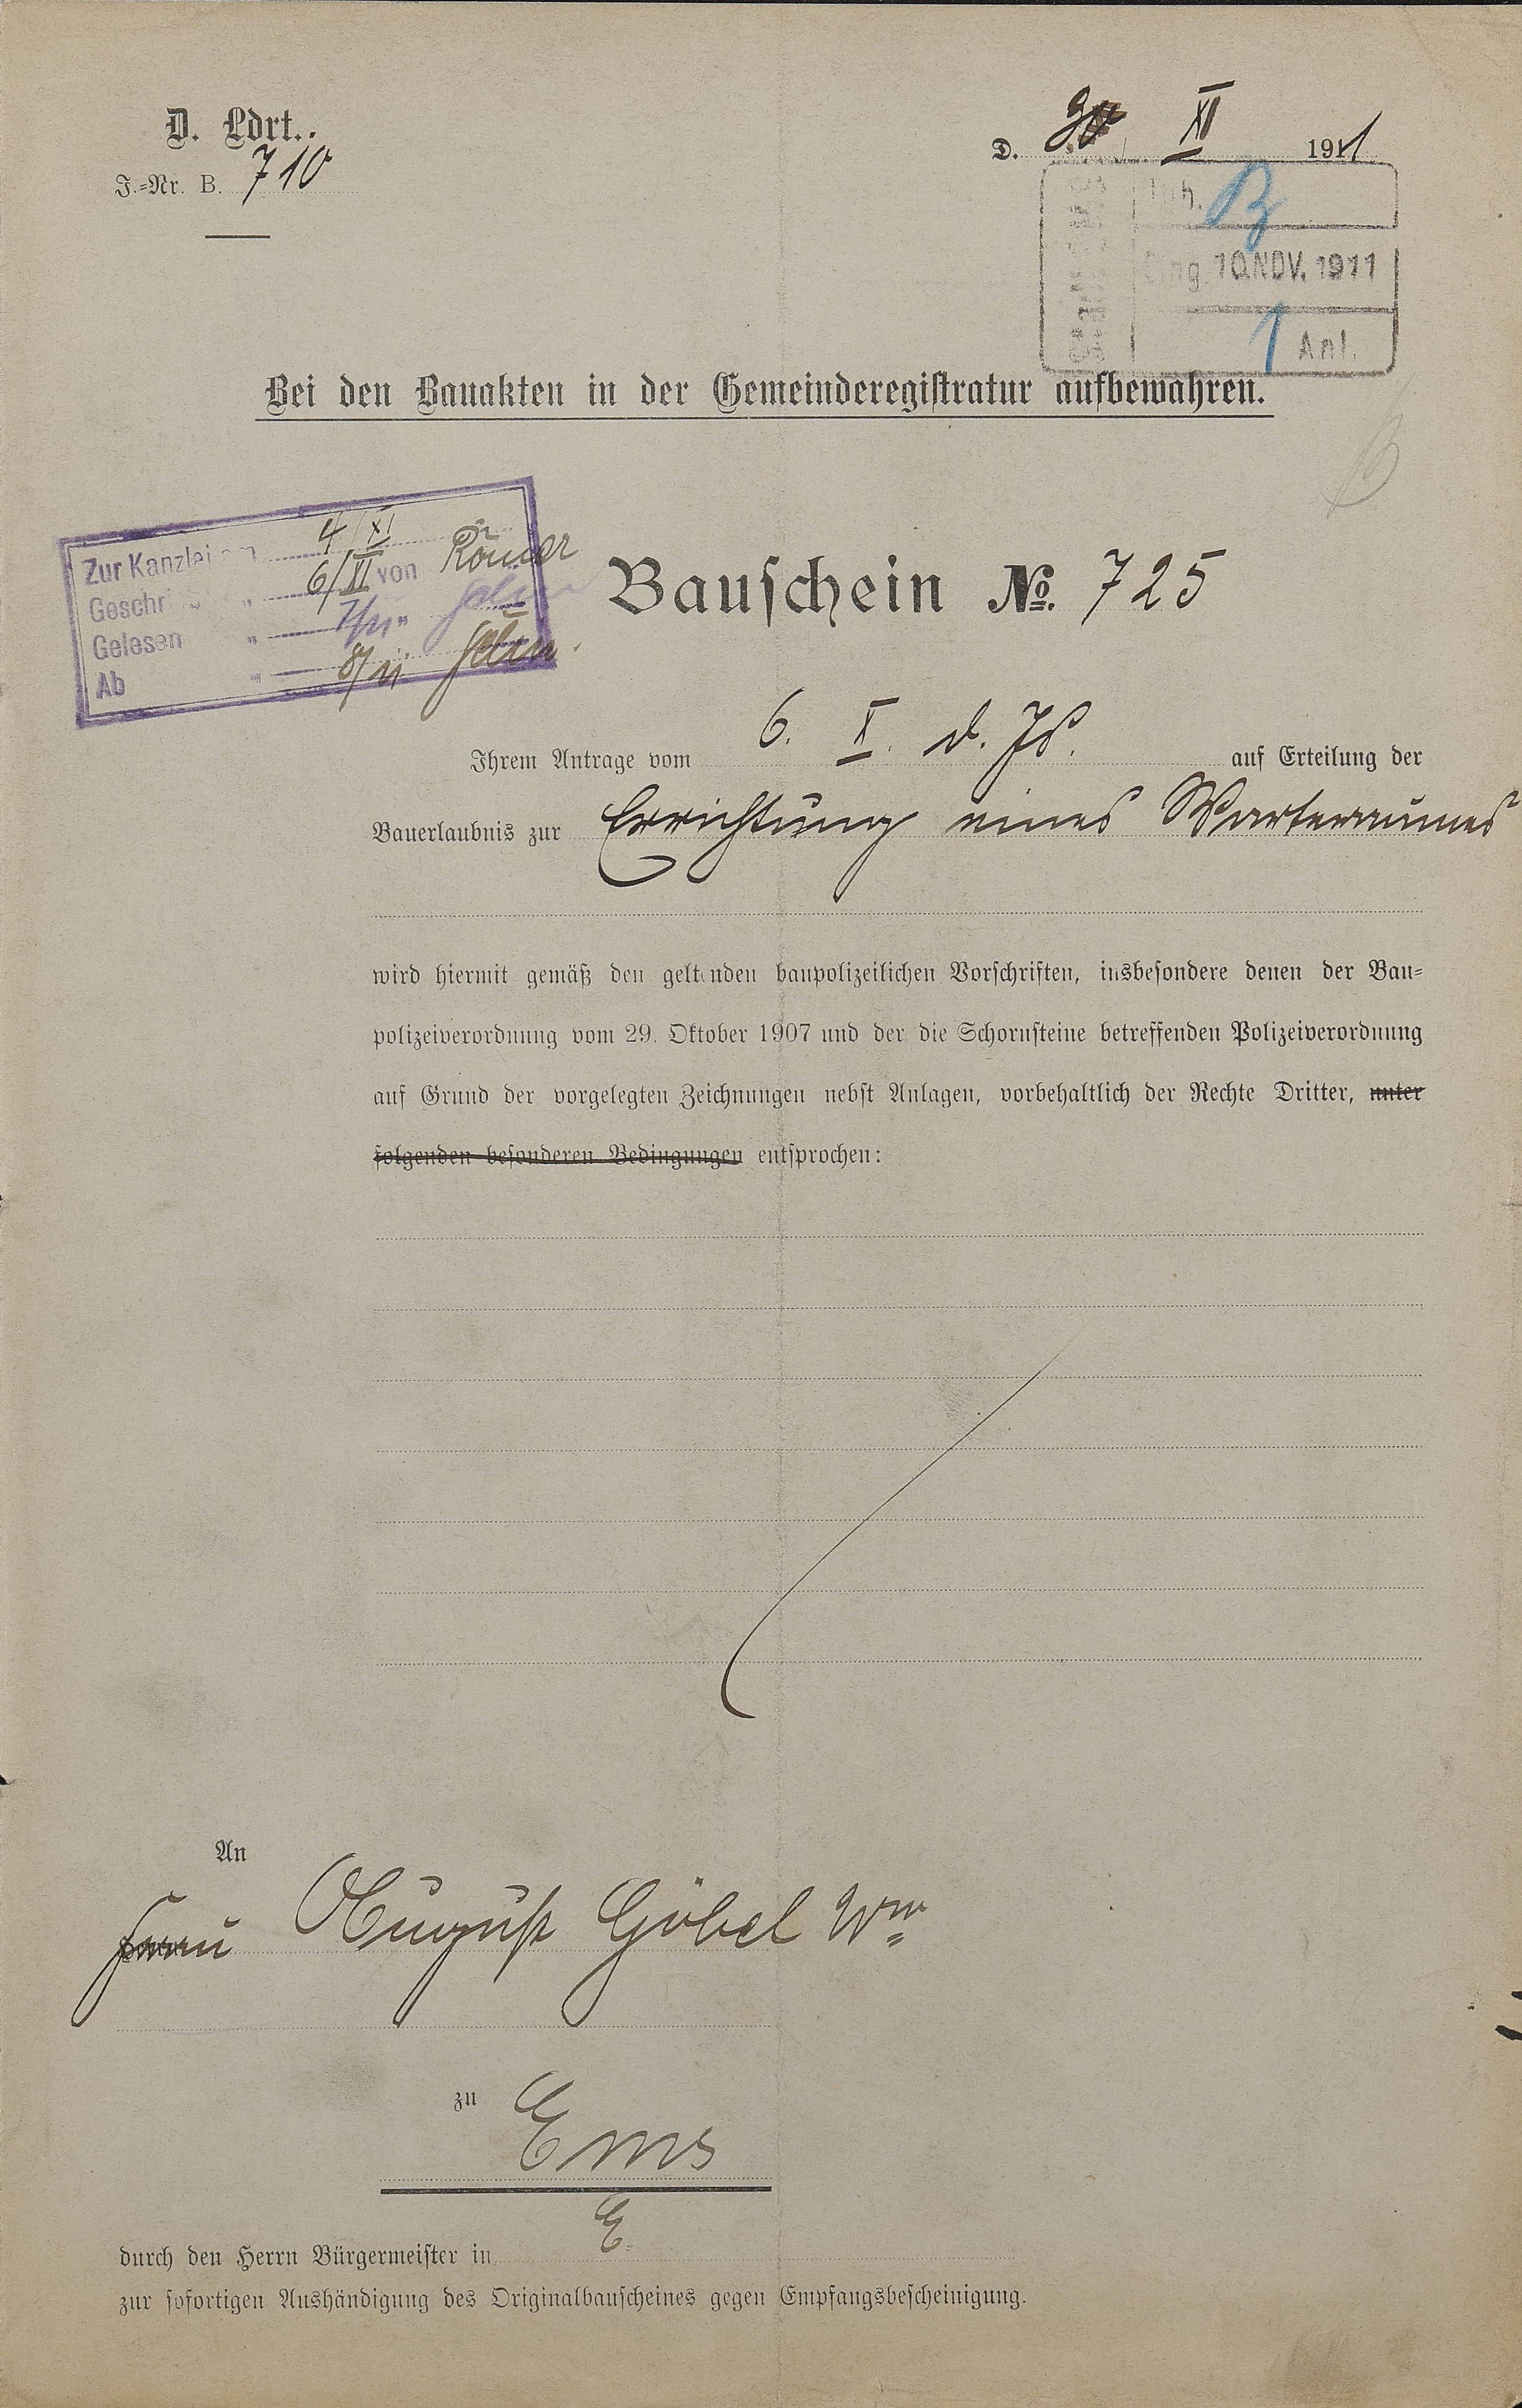 D. Ldrt.
J.=Nr. B. 710
D. XI 1911
Eing. 10. NOV. 1911
1 Anl.
Bei den Bauakten in der Gemeinderegistratur aufbewahren.
Zur Kanzlei am 4/XI
Geschrieben „ 6/XI von Römer
Gelesen „ 7/11 „
Ab „ 8/11
Bauschein No. 725
Ihrem Antrage vom 6. X. d. Js. auf Erteilung der
Bauerlaubnis zur Errichtung eines Warteraumes
wird hiermit gemäß den geltenden baupolizeilichen Vorschriften, insbesondere denen der Bau=
polizeiverordnung vom 29. Oktober 1907 und der die Schornsteine betreffenden Polizeiverordnung
auf Grund der vorgelegten Zeichnungen nebst Anlagen, vorbehaltlich der Rechte Dritter, unter
folgenden besonderen Bedingungen entsprochen:
An
Frau August Göbel Ww
zu Ems
durch den Herrn Bürgermeister in E.
zur sofortigen Aushändigung des Originalbauscheines gegen Empfangsbescheinigung.